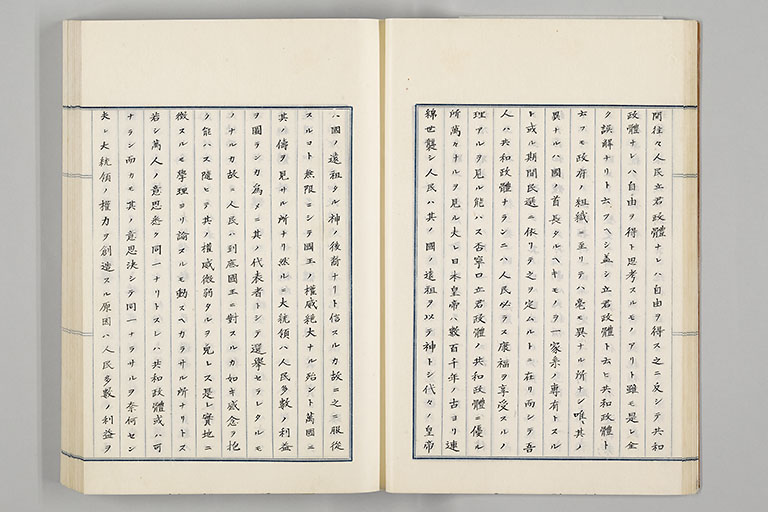 間往々人民立君政體ナレハ自由ヲ得ス之ニ反シテ共和
政體ナレハ自由ヲ得ト思考スルモノアリト雖モ是レ全
ク誤解ナリト云フヘシ盖シ立君政體ト云ヒ共和政體ト
云フモ政府ノ組織ニ至リテハ毫モ異ナル所ナシ唯其ノ
異ナルハ國ノ首長タルヘキモノヲ一家系ノ專有トスル
ト或ル期間民選ニ依リテ之ヲ定ムルトニ在リ而シテ吾
人ハ共和政體ナランニハ人民必ラス康福ヲ享受スルノ
理アルヲ見ル能ハス否寧ロ立君政體ノ共和政體ニ優ル
所萬々ナルヲ見ル夫レ日本皇帝ハ數百千年ノ古ヨリ連
綿世襲シ人民ハ其ノ國ノ遠祖ヲ以テ神トシ代々ノ皇帝
ハ國ノ遠祖タル神ノ後裔ナリト信スルカ故ニ之ニ服從
スルコト無限ニシテ國王ノ權威絶大ナル殆ント萬國ニ
其ノ儔ヲ見サル所ナリ然ルニ大統領ハ人民多數ノ利益
ヲ圖ランカ爲メニ其ノ代表者トシテ選擧セラレタルモ
ノナルカ故ニ人民ハ到底國王ニ對スルカ如キ感念ヲ抱
ク能ハス隨ヒテ其ノ權威微弱タルヲ免レス是レ實地ニ
徴スルモ學理ヨリ論スルモ動スヘカラサル所ナリトス
若シ萬人ノ意思悉ク同一ナリトスレハ共和政體或ハ可
ナラン而カモ其ノ意思決シテ同一ナラサルヲ奈何セン
夫レ大統領ノ權力ヲ創造スル原因ハ人民多數ノ利益ヲ